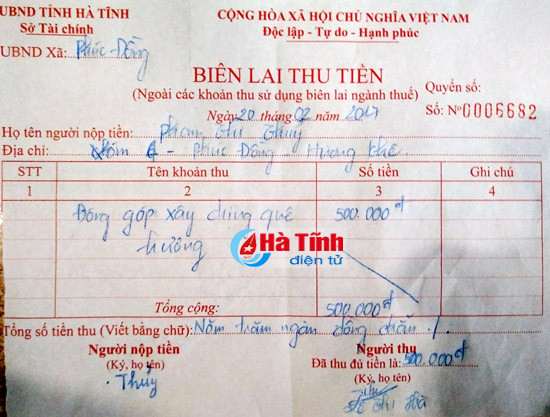 UBND TỈNH HÀ TĨNH
Sở Tài chính
UBND Xã: Phúc Đồng
CỘNG HÒA XÃ HỘI CHỦ NGHĨA VIỆT NAM
Độc lập - Tự do - Hạnh phúc
BIÊN LAI THU TIỀN
(Ngoài các khoản thu sử dụng biên lai ngành thuế)
Quyển số:
Số: Nº 0006682
Ngày 20 tháng 02 năm 2017
Họ tên người nộp tiền: Phạm Thị Thuỷ
Địa chỉ: Xóm 4 - Phúc Đồng - Hương Khê
STT Tên khoản thu Số tiền Ghi chú
1 2 3 4
Đóng góp xây dựng quê 500.000đ
hương
Hà Tĩnh
điện tử
Tổng cộng: 500.000đ
Tổng số tiền thu (Viết bằng chữ): Năm trăm ngàn đồng chẵn ./.
Người nộp tiền
(Ký, họ tên)
Thuỷ
Người thu
Đã thu đủ tiền là: 500.000đ
(Ký, họ tên)
Thị Hà